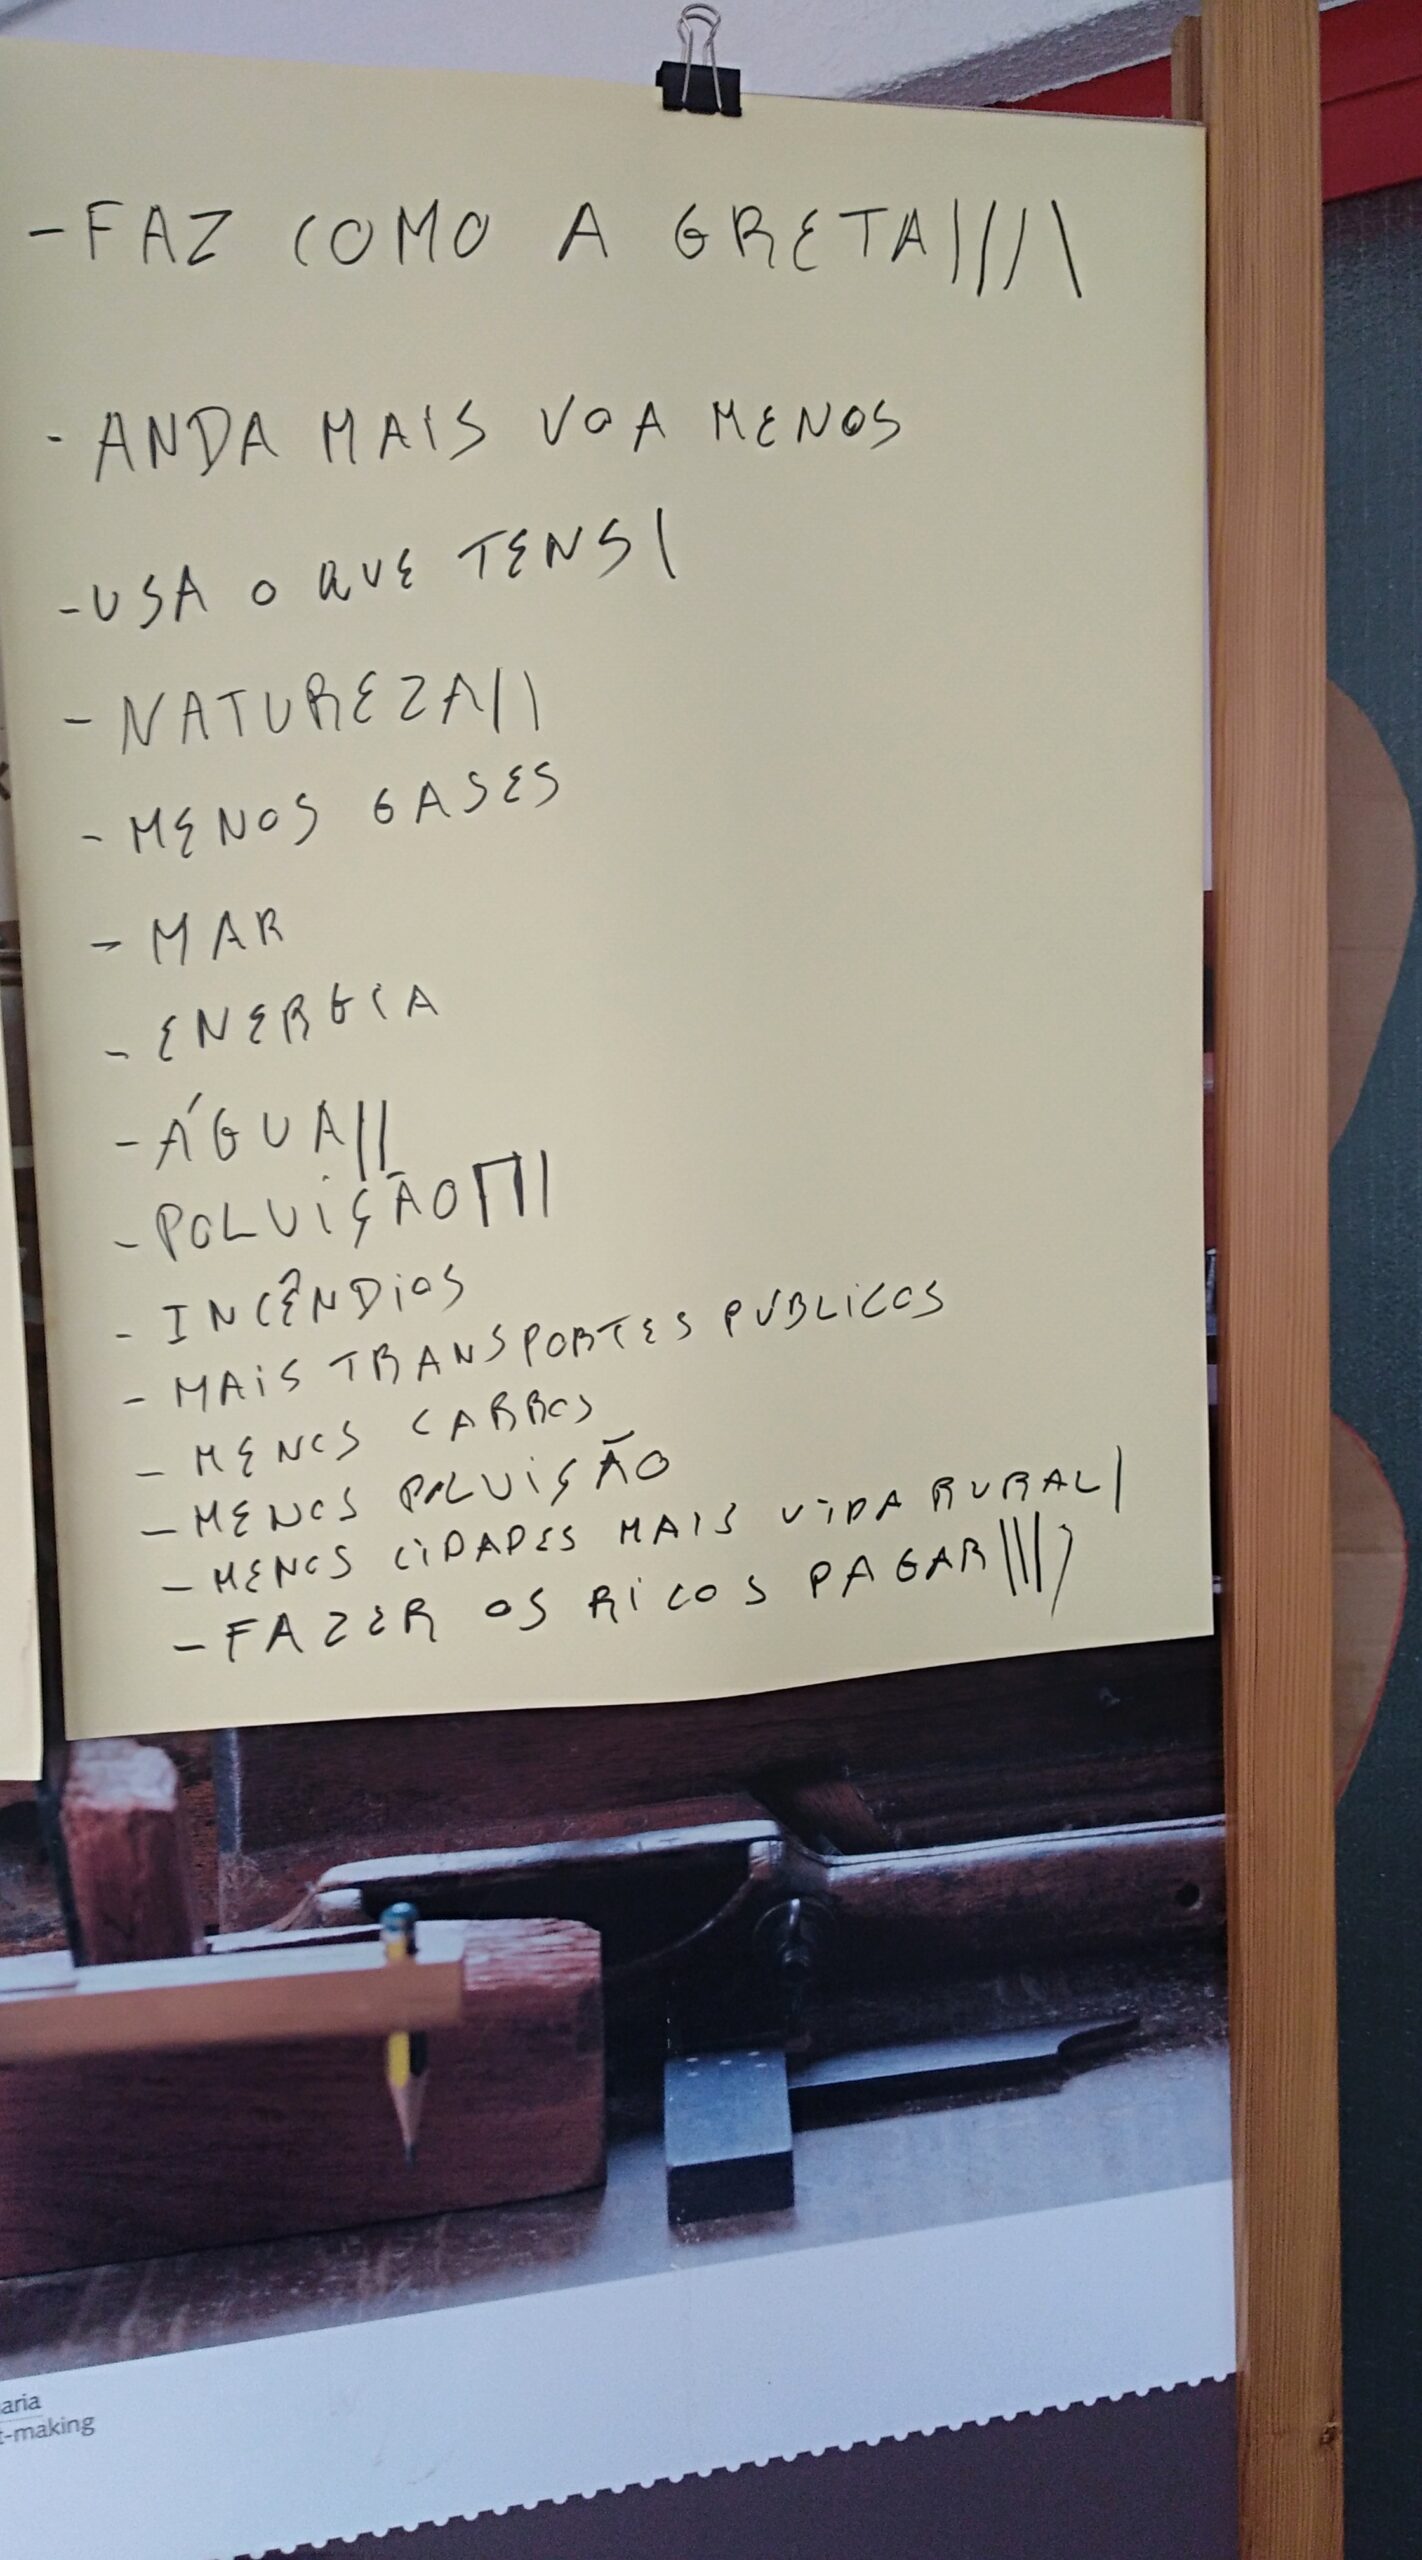 - FAZ COMO A GRETA ||||
- ANDA MAIS VOA MENOS
- USA O QUE TENS |
- NATUREZA ||
- MENOS GASES
- MAR
- ENERGIA
- ÁGUA ||
- POLUIÇÃO |||
- INCÊNDIOS
- MAIS TRANSPORTES PUBLICOS
- MENOS CARROS
- MENOS POLUIÇÃO
- MENOS CIDADES MAIS VIDA RURAL |
- FAZER OS RICOS PAGAR ||||
aria
t-making